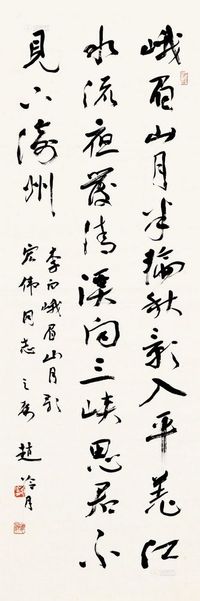 峨眉山月半輪秋影入平羌江
水流夜發清溪向三峽思君不
見下渝州
李白峨眉山月歌
宏偉同志之屬
趙冷月